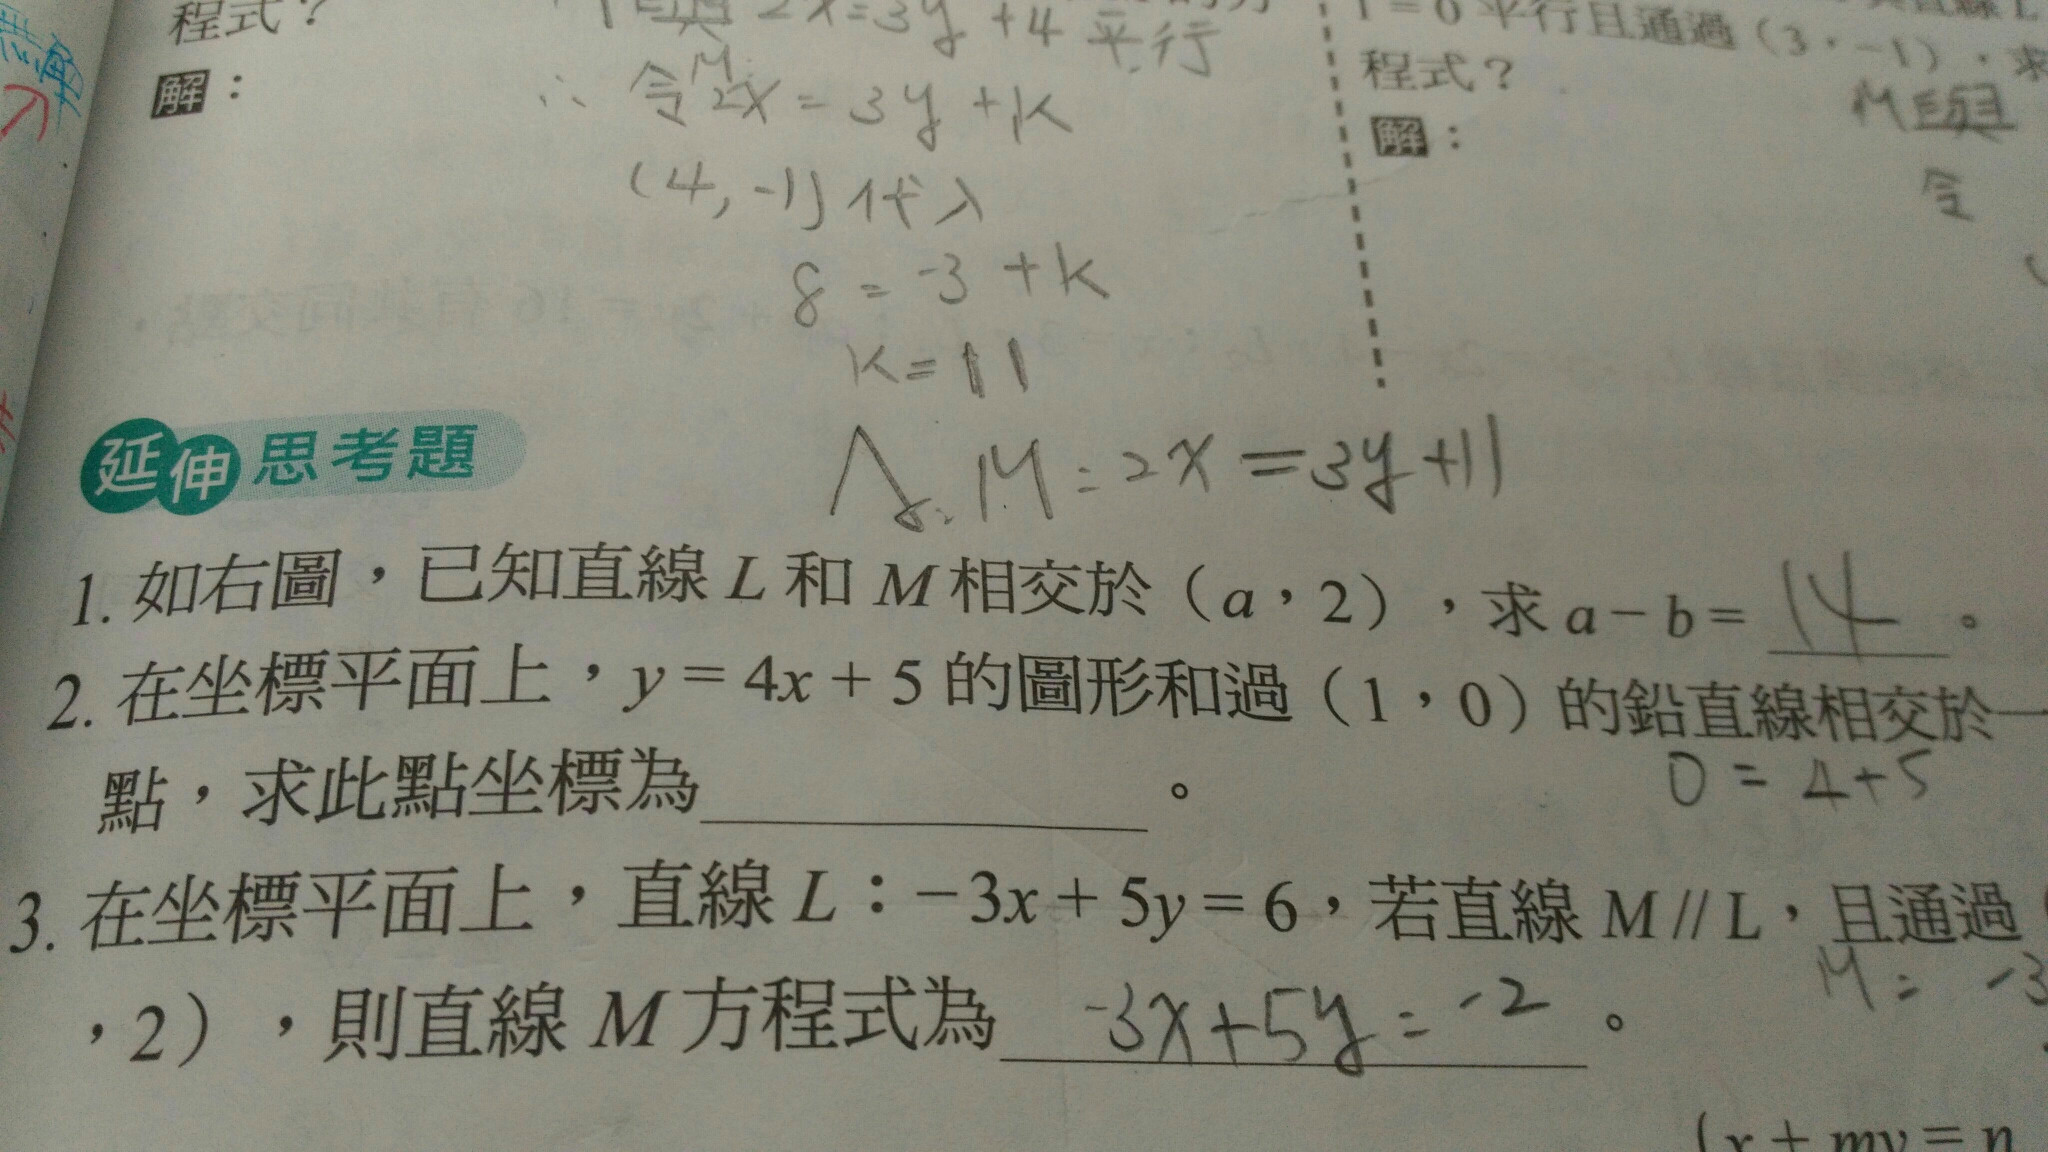 程式？
2x=3y+4 平行
解：
∴ 令M 2x=3y+k
(4,-1)代入
8=-3+k
k=11
A. M:2x=3y+11
1=0平行且通過（3，-1），求
程式？
M與
解：
令
延伸思考題
1. 如右圖，已知直線L和M相交於（a，2），求a-b=14。
2. 在坐標平面上，y=4x+5的圖形和過（1，0）的鉛直線相交於一
0=4+5
點，求此點坐標為　　　。
3. 在坐標平面上，直線L：-3x+5y=6，若直線M//L，且通過
M: -3
，2），則直線M方程式為 -3x+5y=-2。
x+my=n